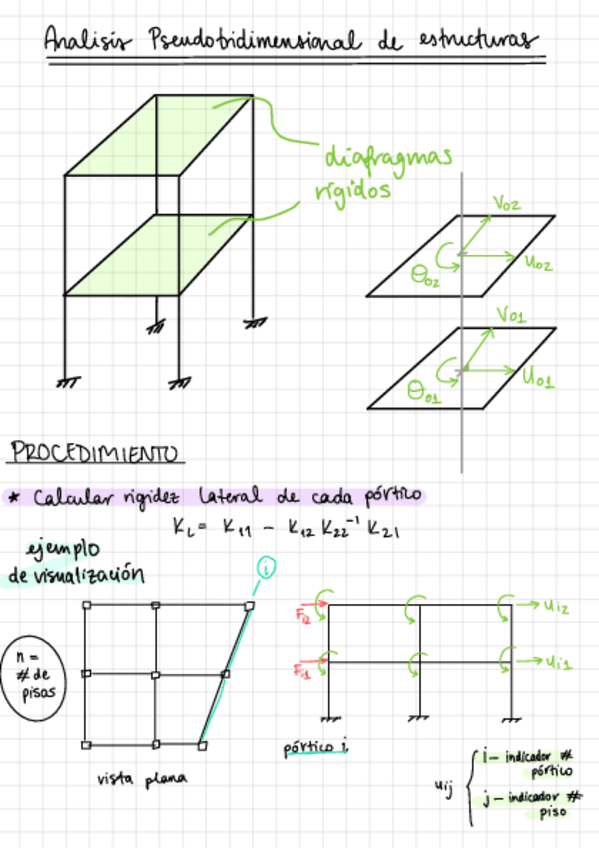 Analisis Pseudobidimensional de estructuras
diafragmas
rígidos
V02
θ02
U02
V01
θ01
U01
PROCEDIMIENTO
* Calcular rigidez lateral de cada pórtico
KL = K11 - K12 K22⁻¹ K21
ejemplo
de visualización
i
n =
# de
pisos
vista plana
Fi2
ui2
Fi1
ui1
pórtico i
uij
i - indicador #
pórtico
j - indicador #
piso